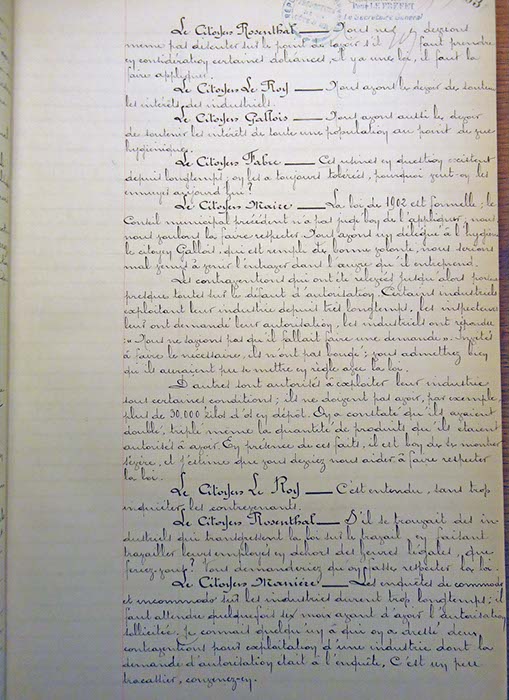 Pour LE PREFET
Le Secrétaire Général
Le Citoyen Rosenthal — Nous ne devrions
même pas discuter sur le point de savoir s'il faut prendre
en considération certaines doléances. Il y a une loi, il faut la
faire appliquer.
Le Citoyen Le Roy — Nous avons le devoir de soutenir
les intérêts des industriels.
Le Citoyen Gallois — Nous avons aussi le devoir
de soutenir les intérêts de toute une population au point de vue
hygiénique.
Le Citoyen Fabre — Ces usines en question existent
depuis longtemps; on les a toujours tolérées, pourquoi veut-on les
ennuyer aujourd'hui?
Le Citoyen Maire — La loi de 1902 est formelle; le
Conseil municipal précédent n'a pas jugé bon de l'appliquer, nous,
nous voulons la faire respecter. Nous avons un délégué à l'hygiène
le citoyen Gallois, qui est rempli de bonne volonté, nous serions
mal venus à venir l'entraver dans l'œuvre qu'il entreprend.
Les contraventions qui ont été relevées jusqu'alors portent
presque toutes sur le défaut d'autorisation. Certains industriels
exploitant leur industrie depuis très longtemps, les inspecteurs
leur ont demandé leur autorisation, les industriels ont répondu:
« Nous ne savions pas qu'il fallait faire une demande ». Invités
à faire le nécessaire, ils n'ont pas bougé; vous admettrez bien
qu'ils auraient pu se mettre en règle avec la loi.
D'autres sont autorisés à exploiter leur industrie
sous certaines conditions; ils ne doivent pas avoir, par exemple,
plus de 30,000 kilos d'os en dépôt. On a constaté qu'ils avaient
doublé, triplé même la quantité de produits qu'ils étaient
autorisés à avoir. En présence de ces faits, il est bon de se montrer
sévère, et j'estime que vous devriez nous aider à faire respecter
la loi.
Le Citoyen Le Roy — C'est entendu, sans trop
inquiéter les contrevenants.
Le Citoyen Rosenthal — S'il se trouvait des in-
dustriels qui transgressent la loi sur le travail, en faisant
travailler leurs employés en dehors des heures légales, que
feriez-vous? Vous demanderiez qu'on fasse respecter la loi.
Le Citoyen Manière — Les enquêtes de commodo
et incommodo sur les industries durent trop longtemps; il
faut attendre quelquefois six mois avant d'avoir l'autorisation
sollicitée. Je connais quelqu'un à qui on a dressé deux
contraventions pour exploitation d'une industrie dont la
demande d'autorisation était à l'enquête. C'est un peu
tracassier, convenez-en.